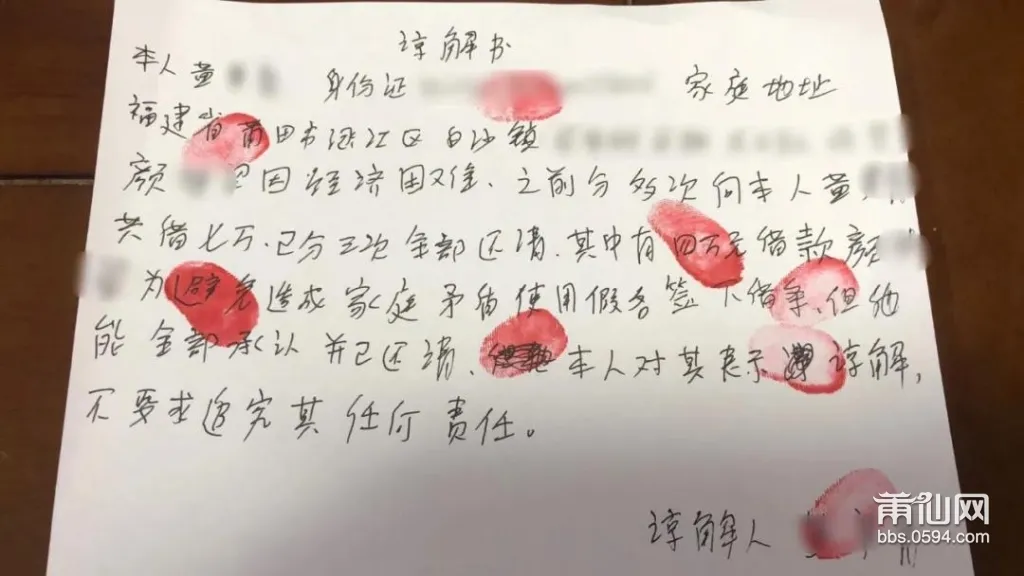 谅解书
本人黄 身份证 家庭地址
福建省莆田市涵江区白沙镇
颜 因经济困难、之前分多次向本人黄
共借七万、已分三次全部还清、其中有四万元借款颜
为避免造成家庭矛盾使用假名签下借条、但他
能全部承认并已还清、本人对其表示谅解,
不要求追究其任何责任。
谅解人
莆仙网
bbs.0594.com